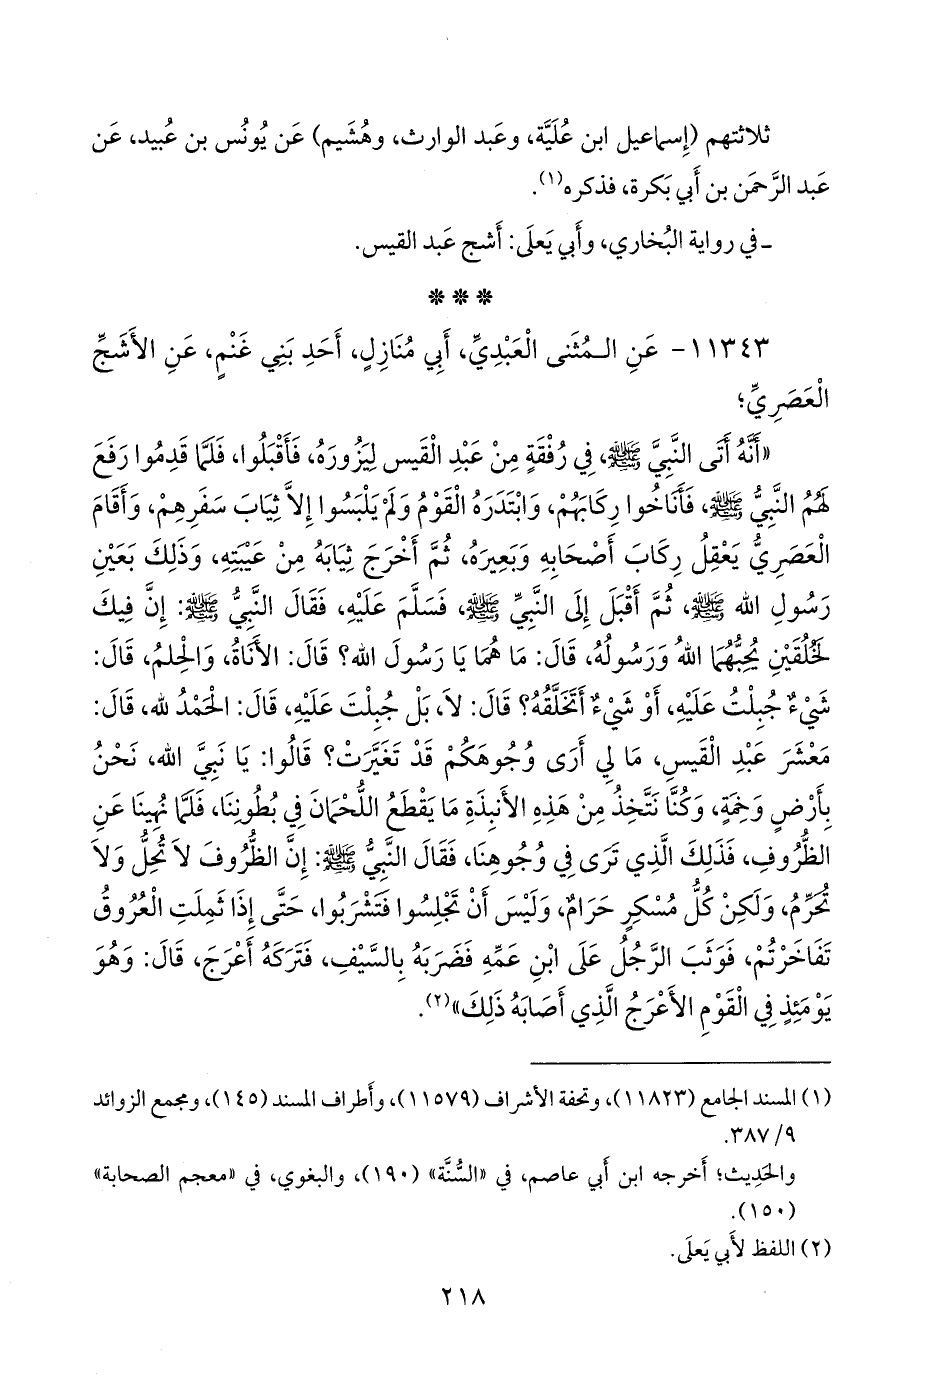 ثلاثتهم (إسماعيل ابن عُلَيَّة، وعَبد الوارث، وهُشَيم) عَن يُونُس بن عُبيد، عَن
عَبد الرَّحمَن بن أَبي بَكرة، فذكره(١).
ـ في رواية البُخاري، وأَبي يَعلَى: أَشج عَبد القيس.
* * *
١١٣٤٣- عَنِ الـمُثنى الْعَبْدِيِّ، أَبِي مُنَازِلٍ، أَحَدِ بَنِي غَنْمٍ، عَنِ الأَشَجِّ
الْعَصَرِيِّ؛
«أَنَّهُ أَتَى النَّبِيَّ ﷺ، فِي رُفْقَةٍ مِنْ عَبْدِ الْقَيسِ لِيَزُورَهُ، فَأَقْبَلُوا، فَلَمَّا قَدِمُوا رَفَعَ
لَهُمُ النَّبِيُّ ﷺ، فَأَنَاخُوا رِكَابَهُمْ، وَابْتَدَرَهُ الْقَوْمُ وَلَمْ يَلْبَسُوا إِلاَّ ثِيَابَ سَفَرِهِمْ، وَأَقَامَ
الْعَصَرِيُّ يَعْقِلُ رِكَابَ أَصْحَابِهِ وَبَعِيرَهُ، ثُمَّ أَخْرَجَ ثِيَابَهُ مِنْ عَيْبَتِهِ، وَذَلِكَ بَعَيْنِ
رَسُولِ الله ﷺ، ثُمَّ أَقْبَلَ إِلَى النَّبِيِّ ﷺ، فَسَلَّمَ عَلَيْهِ، فَقَالَ النَّبِيُّ ﷺ: إِنَّ فِيكَ
لَخُلُقَيْنِ يُحِبُّهُمَا اللهُ وَرَسُولُهُ، قَالَ: مَا هُمَا يَا رَسُولَ الله؟ قَالَ: الأَنَاةُ، وَالْحِلمُ، قَالَ:
شَيْءٌ جُبِلْتُ عَلَيْهِ، أَوْ شَيْءٌ أَتَخَلَّقُهُ؟ قَالَ: لاَ، بَلْ جُبِلْتَ عَلَيْهِ، قَالَ: الْحَمْدُ لله، قَالَ:
مَعْشَرَ عَبْدِ الْقَيسِ، مَا لِي أَرَى وُجُوهَكُمْ قَدْ تَغَيَّرَتْ؟ قَالُوا: يَا نَبِيَّ الله، نَحْنُ
بِأَرْضٍ وَخِمَةٍ، وَكُنَّا نَتَّخِذُ مِنْ هَذِهِ الأَنبِذَةِ مَا يَقْطَعُ اللُّحْمَانَ فِي بُطُونِنَا، فَلَمَّا نُهِينَا عَنِ
الظُّرُوفِ، فَذَلِكَ الَّذِي تَرَى فِي وُجُوهِنَا، فَقَالَ النَّبِيُّ ﷺ: إِنَّ الظُّرُوفَ لاَ تُحِلُّ وَلاَ
تُحَرِّمُ، وَلَكِنْ كُلُّ مُسْكِرٍ حَرَامٌ، وَلَيْسَ أَنْ تَجْلِسُوا فَتَشْرَبُوا، حَتَّى إِذَا ثَمِلَتِ الْعُرُوقُ
تَفَاخَرْتُمْ، فَوَثَبَ الرَّجُلُ عَلَى ابْنِ عَمِّهِ فَضَرَبَهُ بِالسَّيْفِ، فَتَرَكَهُ أَعْرَجَ، قَالَ: وَهُوَ
يَوْمَئِذٍ فِي الْقَوْمِ الأَعْرَجُ الَّذِي أَصَابَهُ ذَلِكَ»(٢).
(١) المسند الجامع (١١٨٢٣)، وتحفة الأشراف (١١٥٧٩)، وأَطراف المسند (١٤٥)، ومجمع الزوائد
٩/ ٣٨٧.
والحَدِيث؛ أَخرجه ابن أَبي عاصم، في «السُّنَّة» (١٩٠)، والبغوي، في «معجم الصحابة»
(١٥٠).
(٢) اللفظ لأَبي يَعلَى.
٢١٨